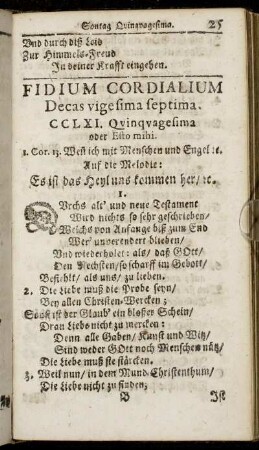 Sontag Qvinqvagesima. 25
Vnd durch diß Leid
Zur Himmels-Freud
In deiner Krafft eingehen.
FIDIUM CORDIALIUM
Decas vigesima septima.
CCLXI. Qvinqvagesima
oder Esto mihi.
1. Cor. 13. Weñ ich mit Menschen und Engel ꝛc.
Auf die Melodie:
Es ist das Heyl uns kommen her/ ꝛc.
1.
Vrchs alt' und neue Testament
Wird nichts so sehr geschrieben/
Welchs von Anfange biß zum End
Wer' unverendert blieben/
Und wiederholet: als/ daß GOtt/
Den Nechsten/ so scharff im Gebott/
Befihlt/ als uns/ zu lieben.
2. Die Liebe muß die Probe seyn/
Bey allen Christen-Wercken;
Sonst ist der Glaub' ein blosser Schein/
Dran Liebe nicht zu mercken:
Denn alle Gaben/ Kunst und Witz/
Sind weder GOtt noch Menschen nütz/
Die Liebe muß sie stärcken.
3. Weil nun/ in dem Mund-Christenthum/
Die Liebe nicht zu finden;
B Ist